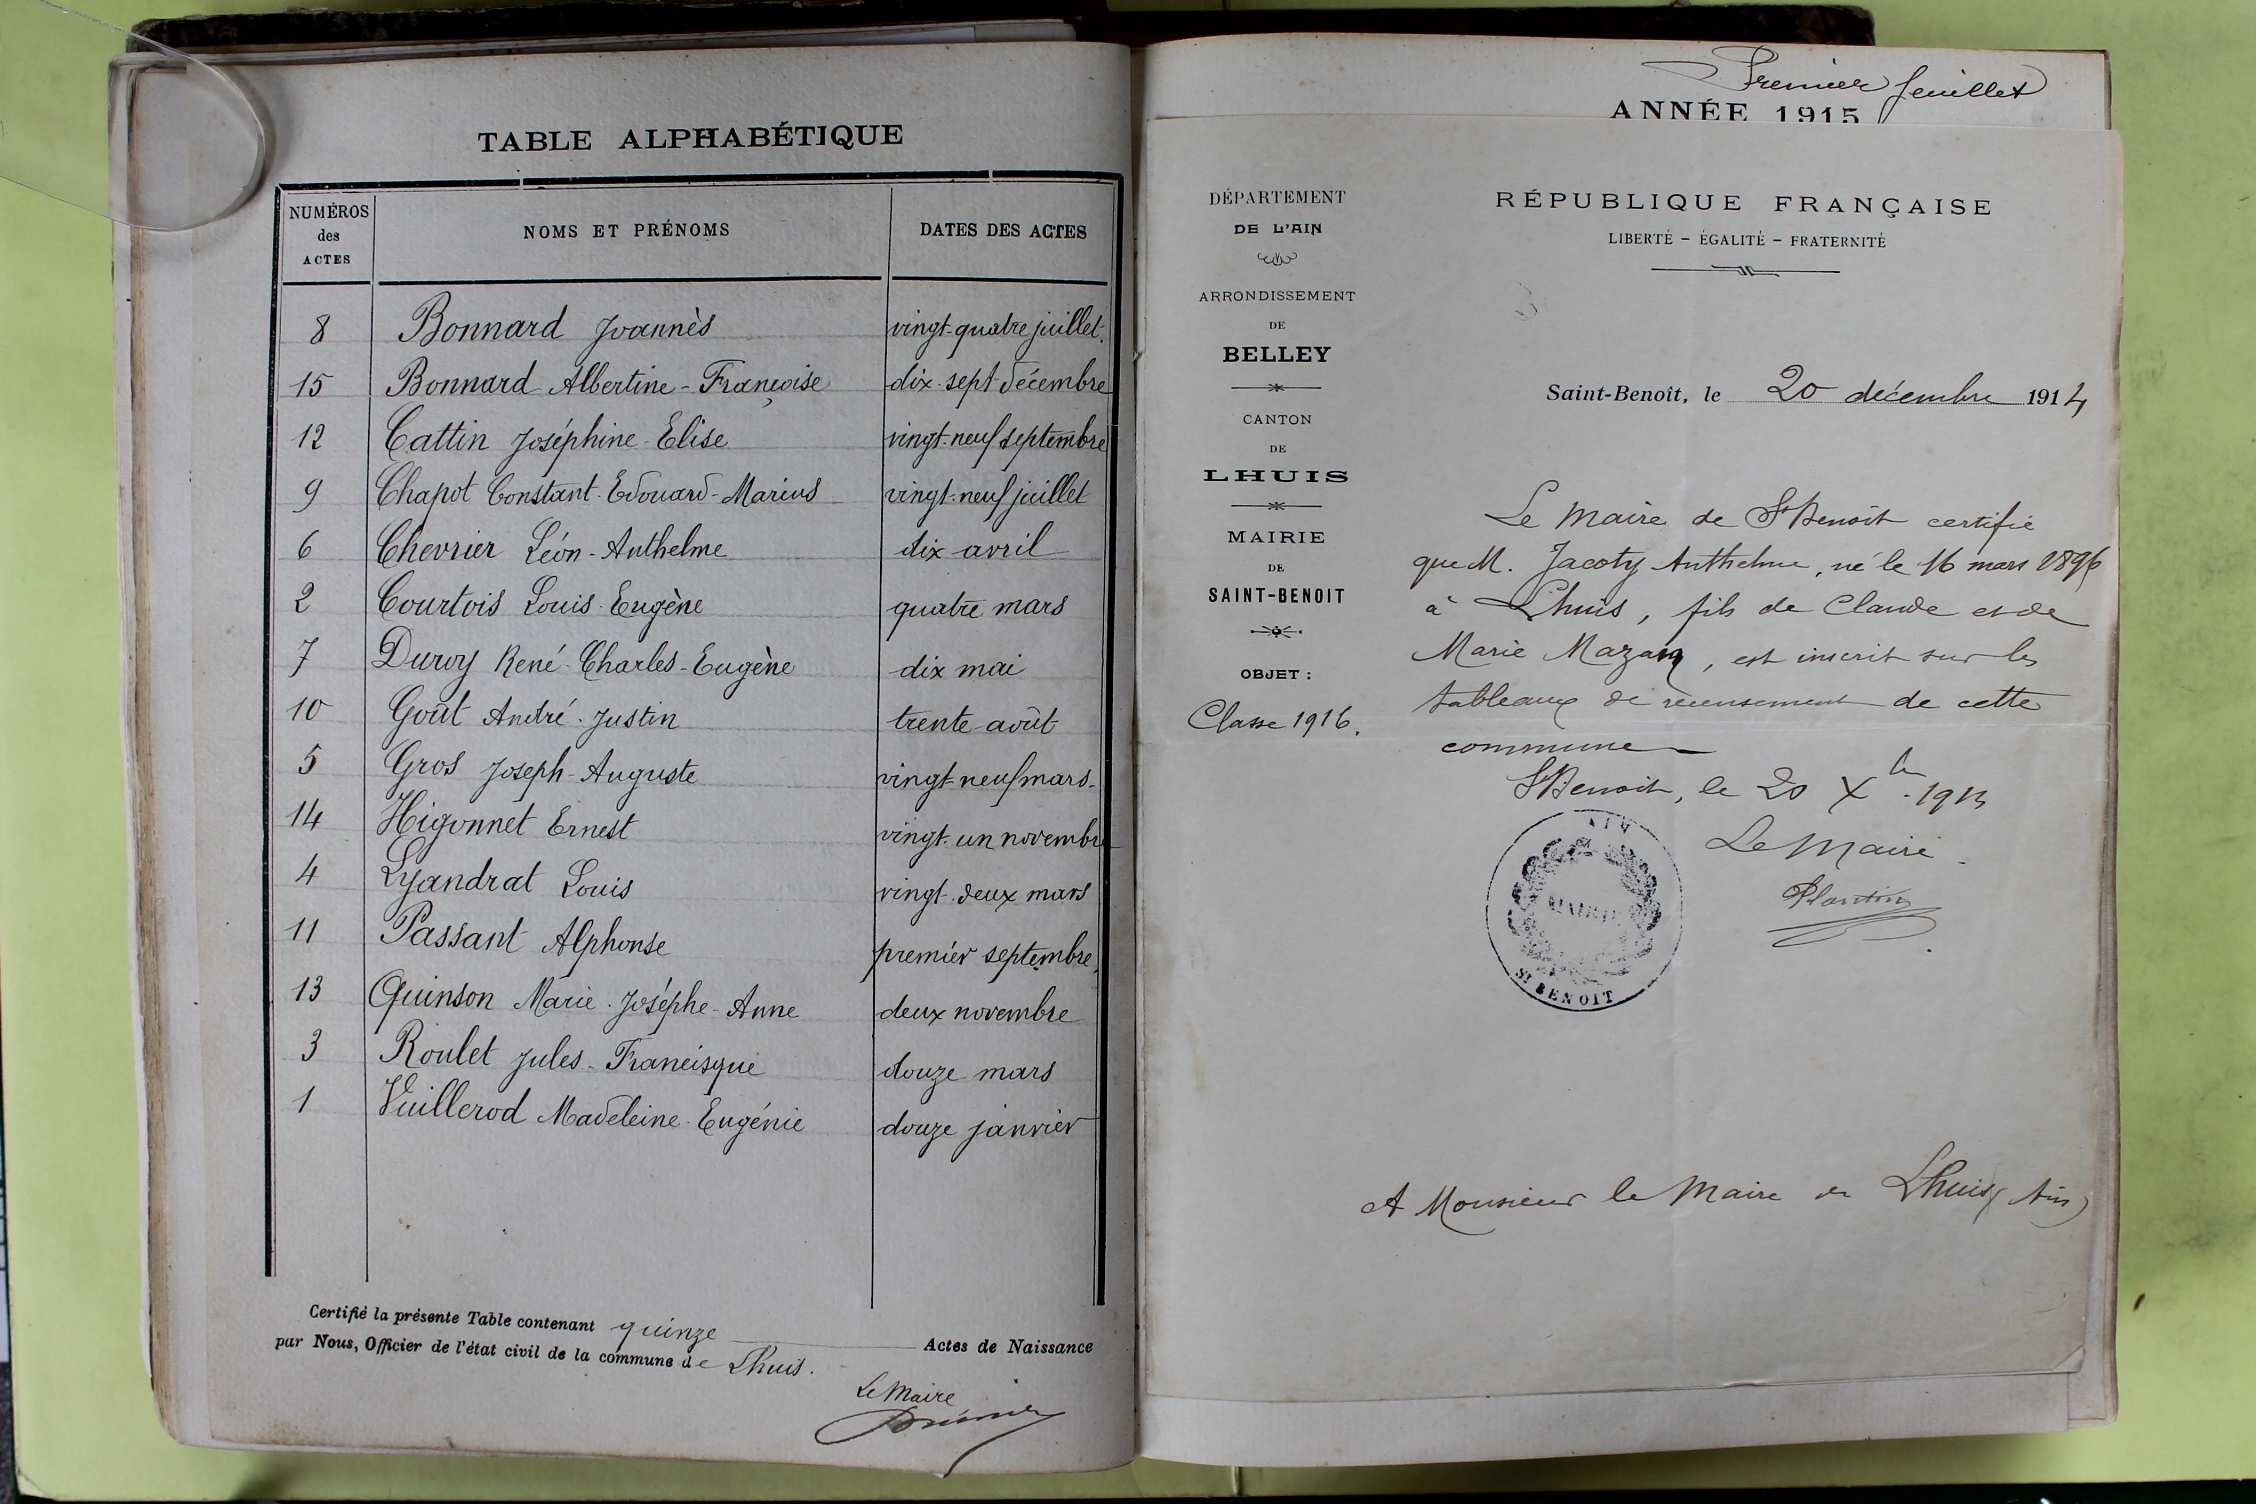 TABLE ALPHABÉTIQUE
NUMÉROS des ACTES
NOMS ET PRÉNOMS
DATES DES ACTES
8 Bonnard Joannès vingt-quatre juillet.
15 Bonnard Albertine-Françoise dix-sept décembre
12 Cattin Joséphine-Elise vingt-neuf septembre
9 Chapot Constant-Edouard-Marius vingt-neuf juillet
6 Chevrier Léon-Anthelme dix avril
2 Courtois Louis-Eugène quatre mars
7 Duroy René-Charles-Eugène dix mai
10 Goût André-Justin trente août
5 Gros Joseph-Auguste vingt-neuf mars
14 Higonnet Ernest vingt-un novembre
4 Lyandrat Louis vingt-deux mars
11 Passant Alphonse premier septembre
13 Quinson Marie-Josèphe-Anne deux novembre
3 Roulet Jules-Francisque douze mars
1 Vuillerod Madeleine-Eugénie douze janvier
Certifié la présente Table contenant quinze Actes de Naissance
par Nous, Officier de l'état civil de la commune de Lhuis.
Le Maire
Premier feuillet
ANNÉE 1915
DÉPARTEMENT
DE L'AIN
ARRONDISSEMENT
DE
BELLEY
CANTON
DE
LHUIS
MAIRIE
DE
SAINT-BENOIT
OBJET :
Classe 1916.
RÉPUBLIQUE FRANÇAISE
LIBERTÉ - ÉGALITÉ - FRATERNITÉ
Saint-Benoît, le 20 décembre 1914
Le Maire de St Benoît certifie
que M. Jacoty Anthelme, né le 16 mars 1896
à Lhuis, fils de Claude et de
Marie, est inscrit sur les
tableaux de recensement de cette
commune
St Benoit, le 20 Xbre
Le Maire
AIN
MAIRIE
St BENOIT
A Monsieur le Maire de Lhuis (Ain)